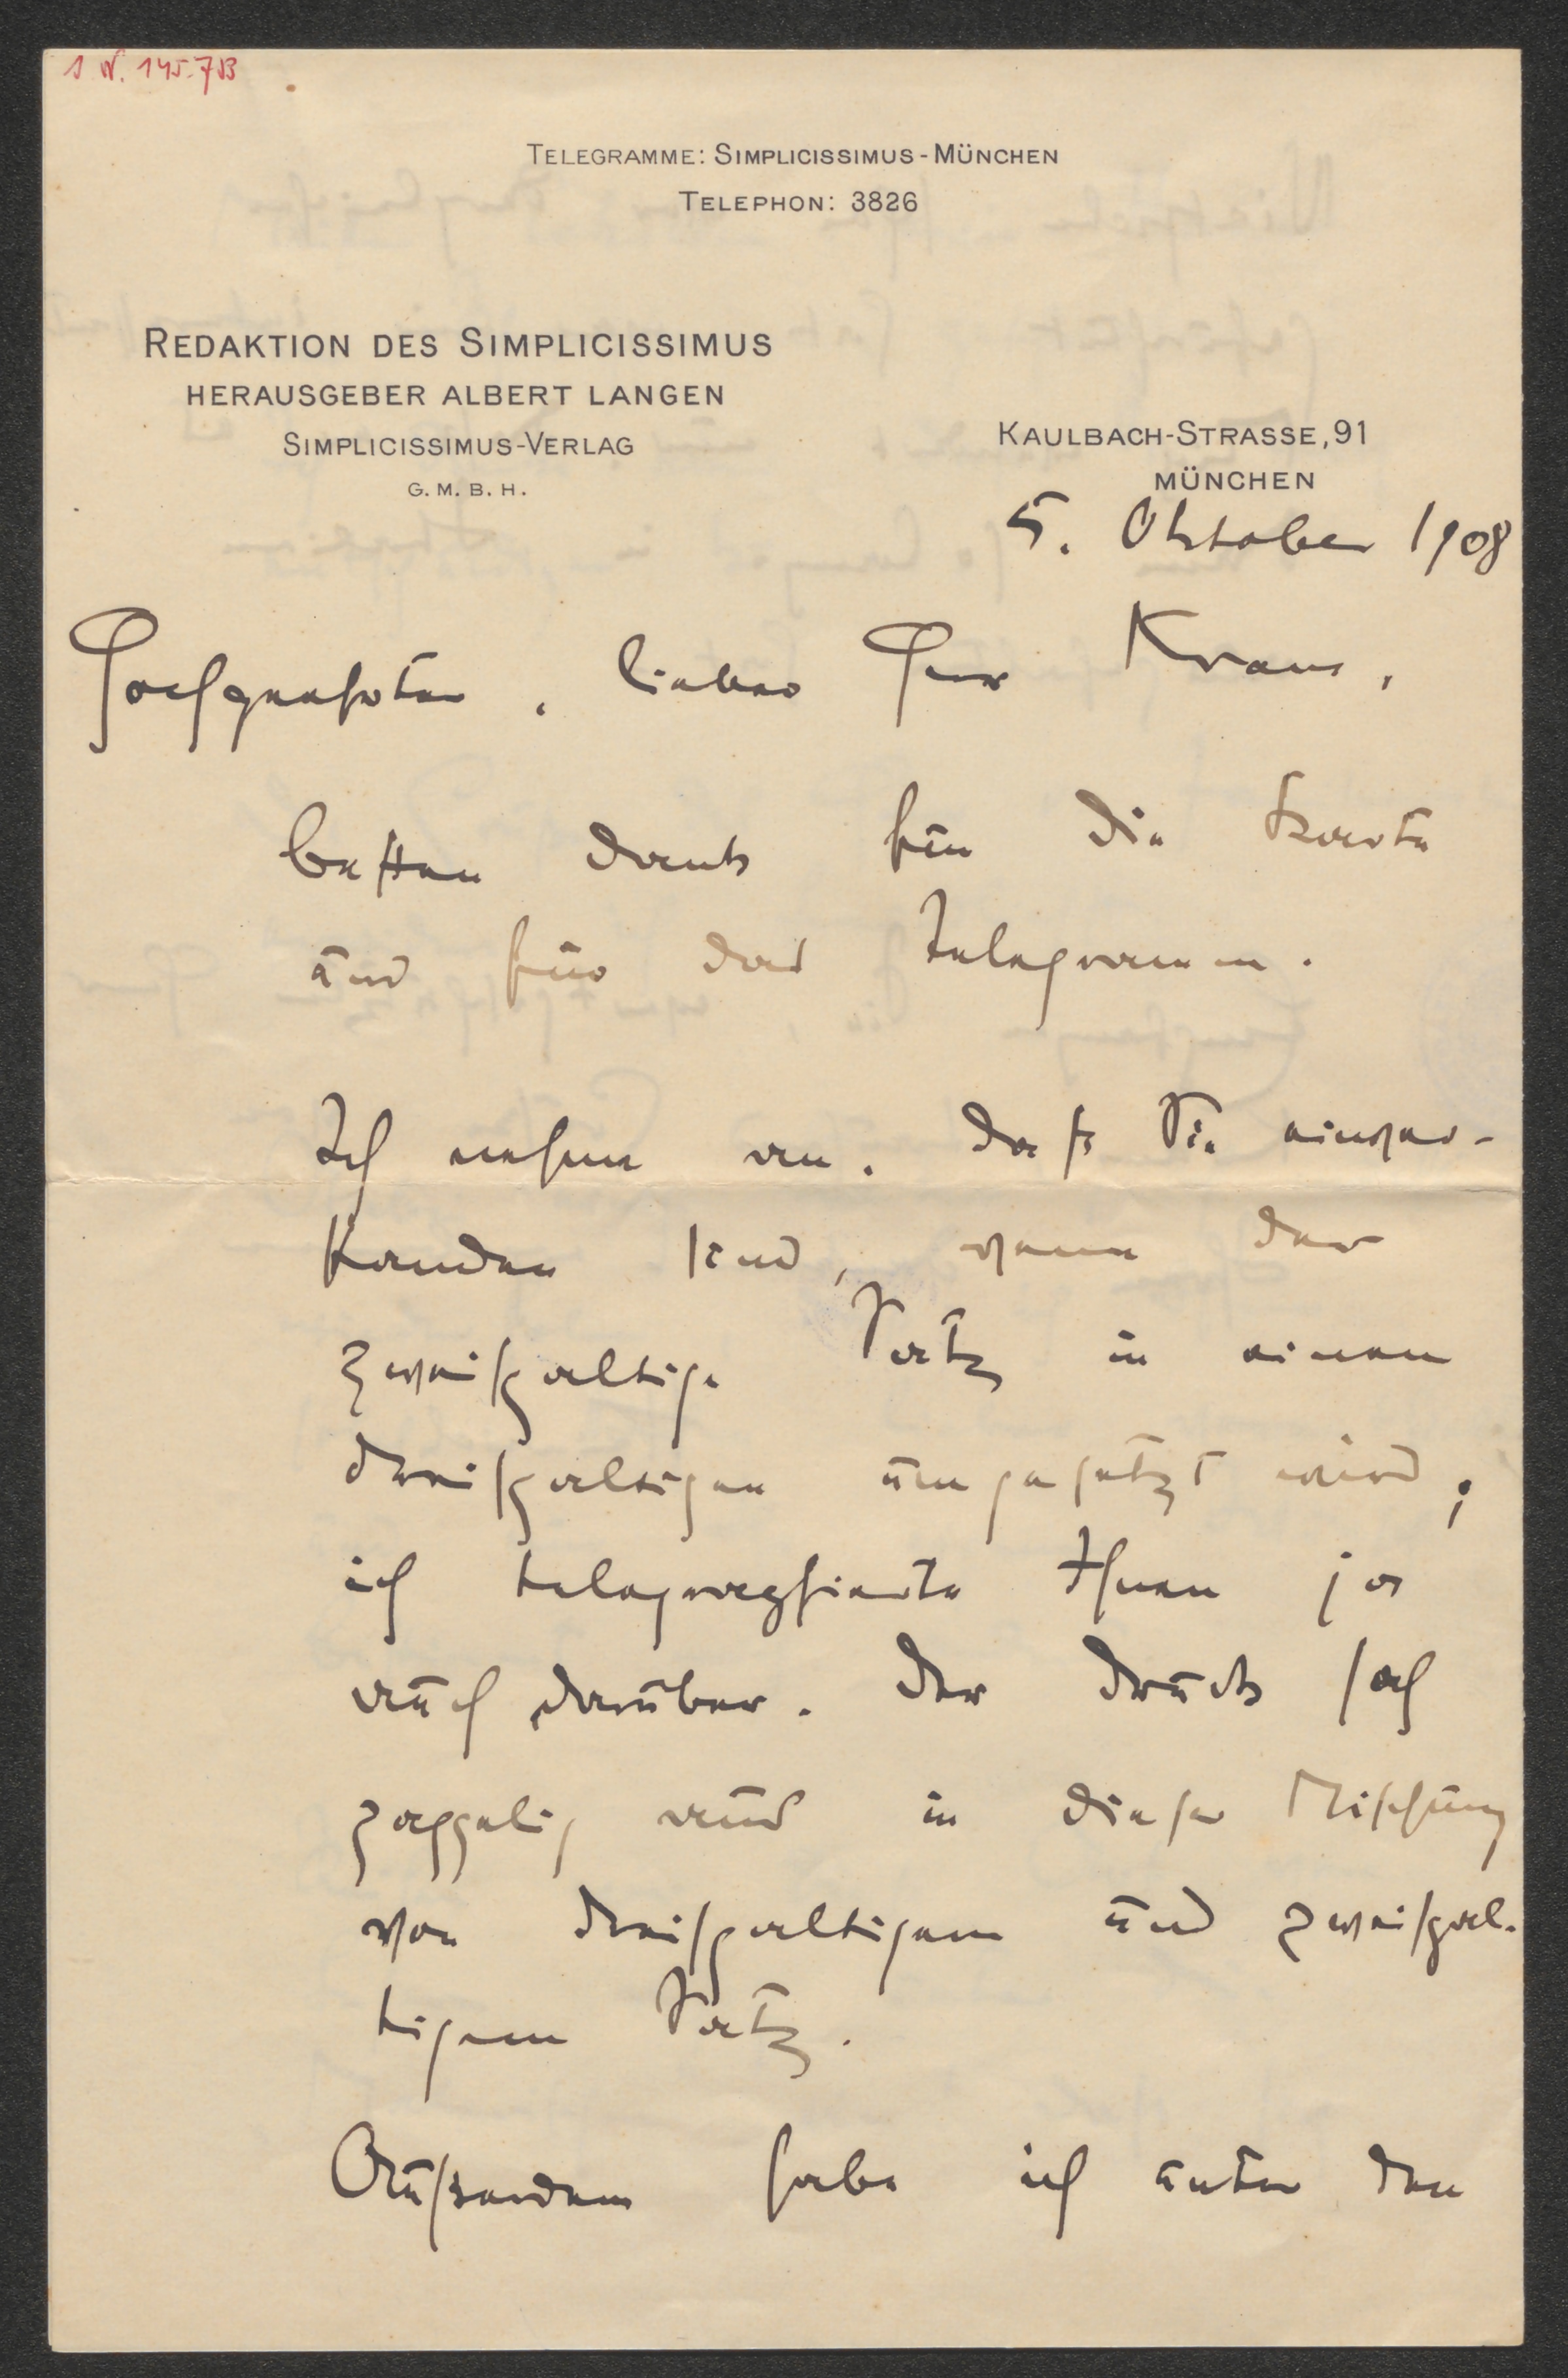 I. N. 145.713
TELEGRAMME: SIMPLICISSIMUS-MÜNCHEN
TELEPHON: 3826
REDAKTION DES SIMPLICISSIMUS
HERAUSGEBER ALBERT LANGEN
SIMPLICISSIMUS-VERLAG
G. M. B. H.
KAULBACH-STRASSE, 91
MÜNCHEN
5. Oktober 1908
Hochgeehrter, lieber Herr Kraus,
besten Dank für die Karte
und für das Telegramm.
Ich nehme an, daß Sie einver-
standen sind, wenn der
zweispaltige Satz in einen
dreispaltigen umgesetzt wird;
ich telegraphierte Ihnen ja
auch darüber. Der Druck sah
zappelig aus in dieser Mischung
von dreispaltigem und zweispal-
tigem Satz.
Außerdem habe ich unter den